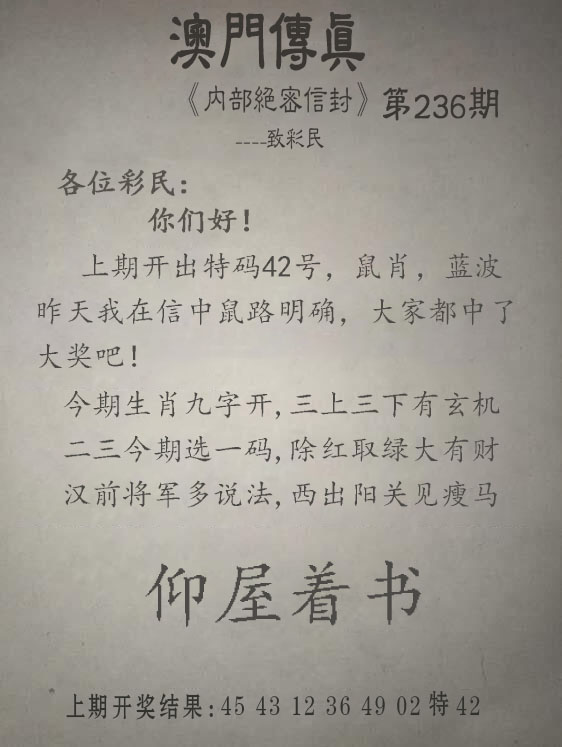 澳門傳眞
《内部絕密信封》第236期
----致彩民
各位彩民：
你们好！
上期开出特码42号，鼠肖，蓝波
昨天我在信中鼠路明确，大家都中了
大奖吧！
今期生肖九字开,三上三下有玄机
二三今期选一码,除红取绿大有财
汉前将军多说法,西出阳关见瘦马
仰屋着书
上期开奖结果:45 43 12 36 49 02 特 42